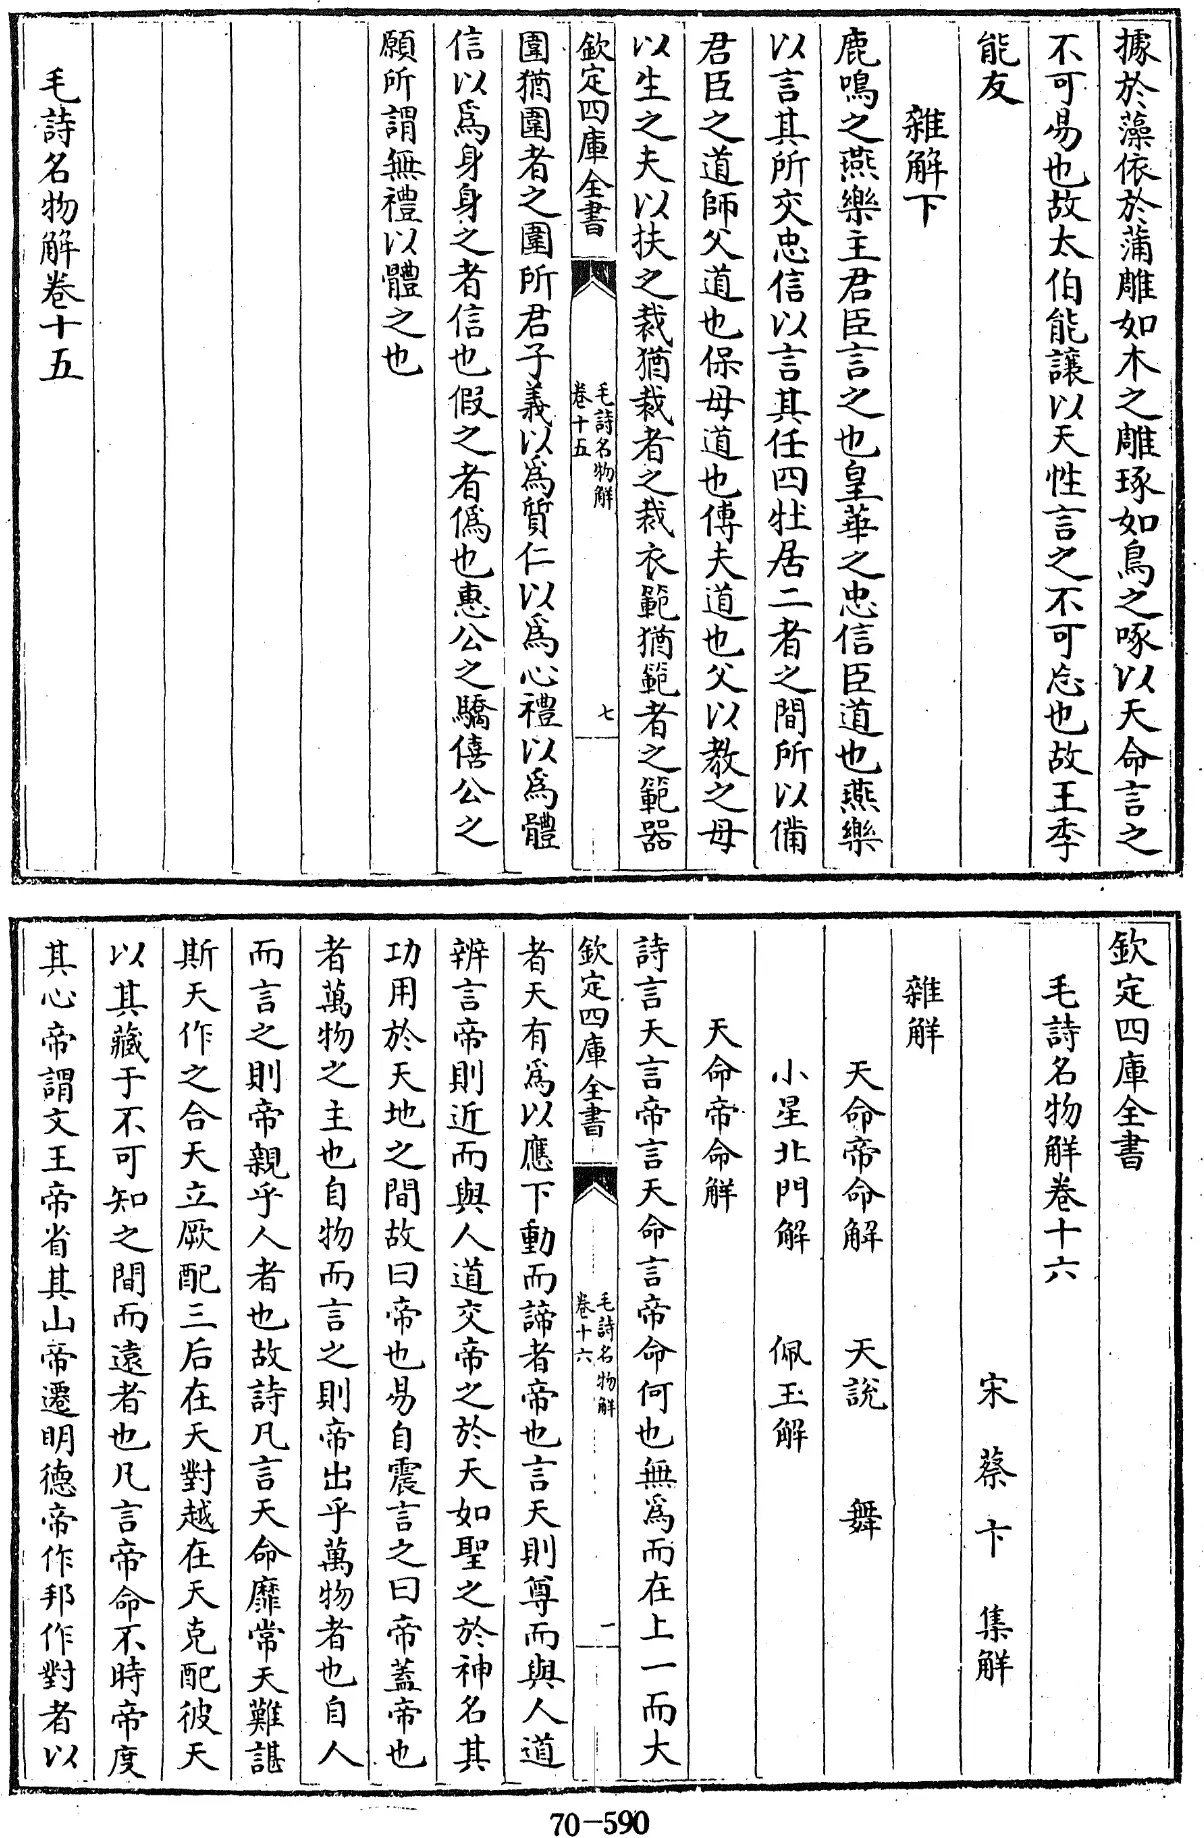 據於藻依於蒲雕如木之雕琢如鳥之啄以天命言之
不可易也故太伯能讓以天性言之不可忘也故王季
能友
雜解下
鹿鳴之燕樂主君臣言之也皇華之忠信臣道也燕樂
以言其所交忠信以言其任四牡居二者之間所以備
君臣之道師父道也保母道也傅夫道也父以教之母
以生之夫以扶之裁猶裁者之裁衣範猶範者之範器
欽定四庫全書
毛詩名物解
卷十五
七
圍猶圍者之圍所君子義以為質仁以為心禮以為體
信以為身身之者信也假之者偽也惠公之驕僖公之
願所謂無禮以體之也
毛詩名物解卷十五
欽定四庫全書
毛詩名物解卷十六
宋 蔡卞 集解
雜解
天命帝命解 天說 舞
小星北門解 佩玉解
天命帝命解
詩言天言帝言天命言帝命何也無為而在上一而大
欽定四庫全書
毛詩名物解
卷十六
一
者天有為以應下動而諦者帝也言天則尊而與人道
辨言帝則近而與人道交帝之於天如聖之於神名其
功用於天地之間故曰帝也易自震言之曰帝蓋帝也
者萬物之主也自物而言之則帝出乎萬物者也自人
而言之則帝親乎人者也故詩凡言天命靡常天難諶
斯天作之合天立厥配三后在天對越在天克配彼天
以其藏于不可知之間而遠者也凡言帝命不時帝度
其心帝謂文王帝省其山帝遷明德帝作邦作對者以
70-590